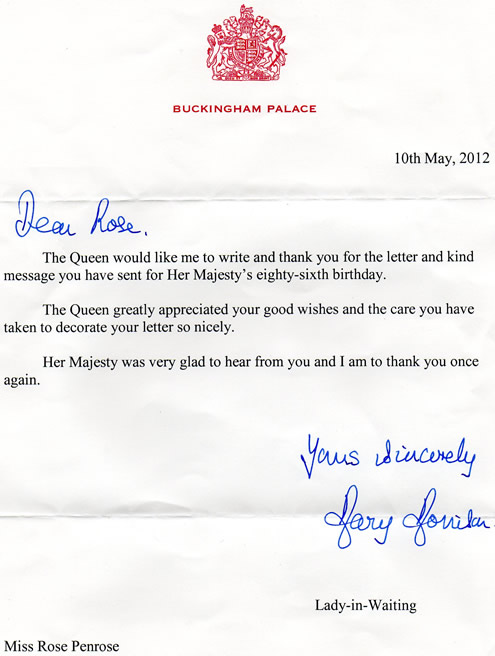 BUCKINGHAM PALACE
10th May, 2012
Dear Rose.
The Queen would like me to write and thank you for the letter and kind
message you have sent for Her Majesty's eighty-sixth birthday.
The Queen greatly appreciated your good wishes and the care you have
taken to decorate your letter so nicely.
Her Majesty was very glad to hear from you and I am to thank you once
again.
Yours sincerely
Mary
Lady-in-Waiting
Miss Rose Penrose